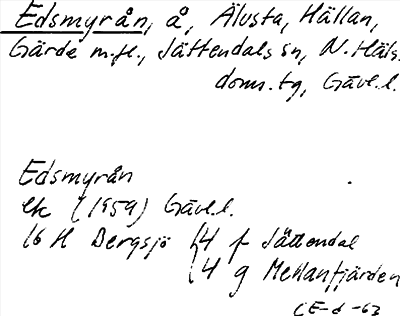 Edsmyrån, å, Älvsta, Hällan,
Gärde m.fl., Jättendals sn, N. Häls.
doms.tg, Gävl.l.
Edsmyrån
ek (1959) Gävl.l.
16 H Bergsjö 4 f Jättendal
4 g Mellanfjärden
CE-d -63